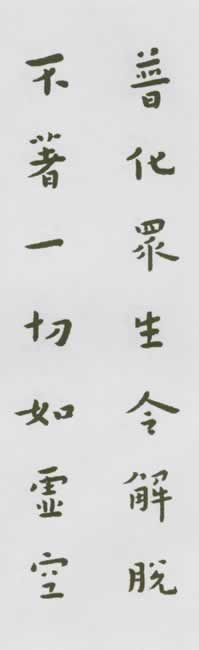 普化眾生令解脫
不著一切如虛空